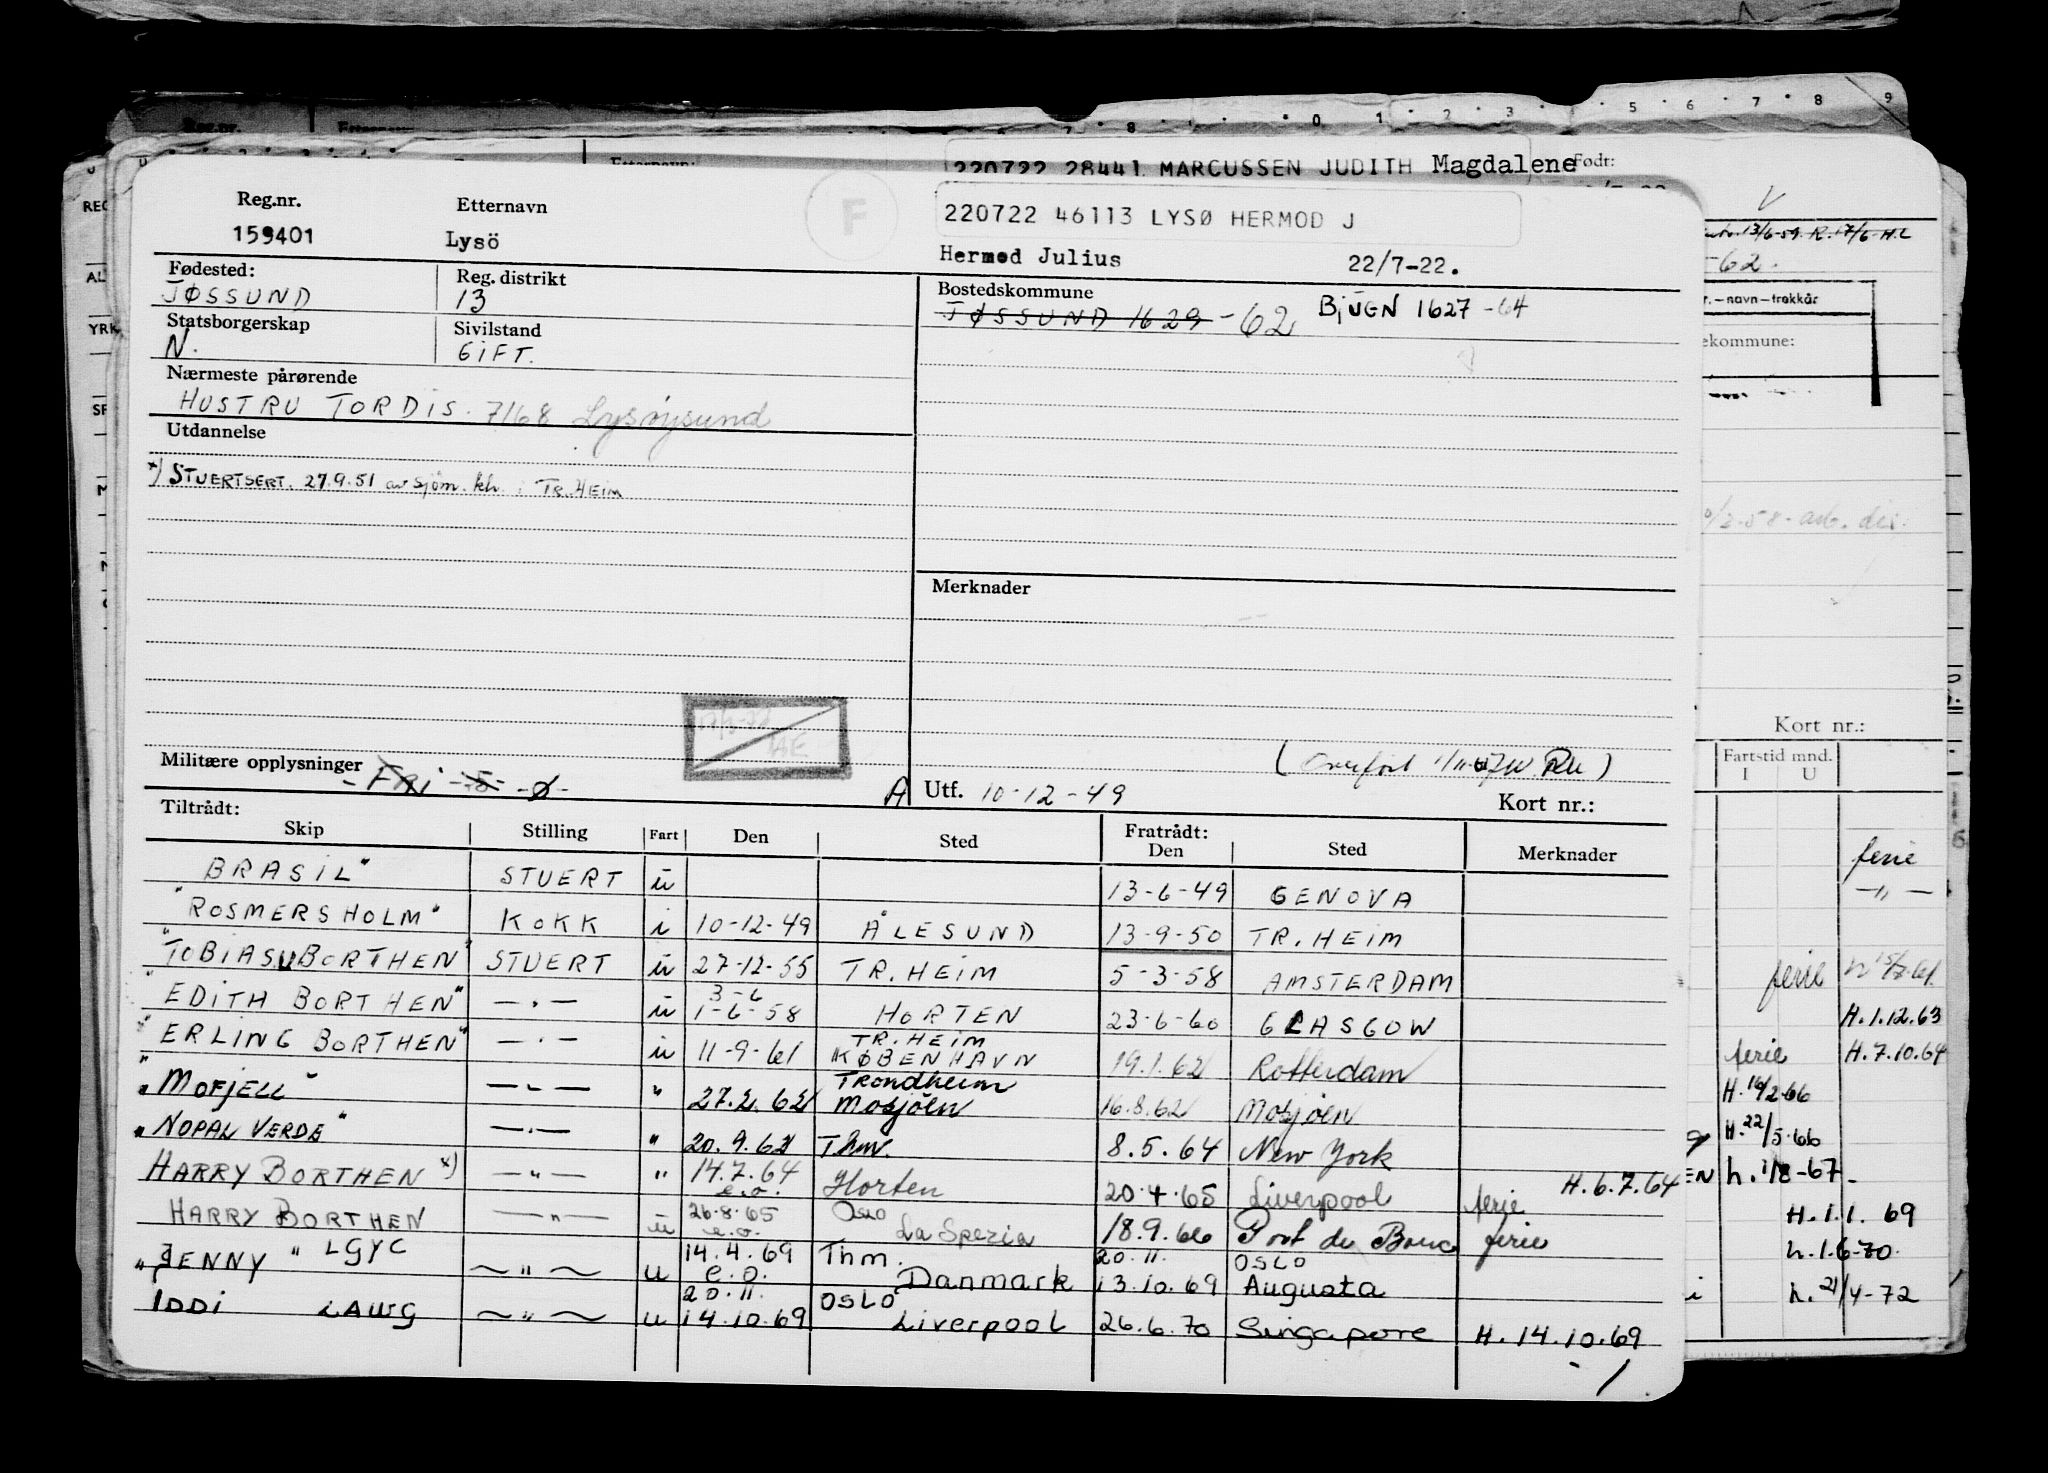 220722 28441 MARCUSSEN JUDITH Magdalene Født:
F
Reg.nr. Etternavn 220722 46113 LYSØ HERMOD J
159401 Lysö Hermod Julius 22/7-22.
Fødested: Reg. distrikt Bostedskommune
JØSSUND 13 JØSSUND 1629 -62 BJUGN 1627 -64
Statsborgerskap Sivilstand
N. GIFT.
Nærmeste pårørende
HUSTRU TORDIS. 7168 Lysøysund
Utdannelse
*) STUERTSERT. 27.9.51 av sjøm. kh. i TR.HEIM
Merknader
(Overført RU)
Militære opplysninger - Fri - 5 - Ø -
A Utf. 10-12-49 Kort nr.:
Tiltrådt: Fratrådt:
Skip Stilling Fart Den Sted Den Sted Merknader
BRASIL" STUERT u 13-6-49 GENOVA
"ROSMERSHOLM" KOKK i 10-12-49 ÅLESUND 13-9-50 TR.HEIM
"TOBIAS U BORTHEN" STUERT u 27-12-55 TR.HEIM 5-3-58 AMSTERDAM
3-6
"EDITH BORTHEN" —„— u 1-6-58 HORTEN 23-6-60 GLASGOW
TR.HEIM
"ERLING BORTHEN" —„— u 11-9-61 KØBENHAVN 19.1.62 Rotterdam
Trondheim
"MOFJELL" —„— " 27.2.62 Mosjöen 16.8.62 Mosjöen
"NOPAL VERDE" —„— " 20.9.62 Thm. 8.5.64 New York
HARRY BORTHEN *) —„— " 14.7.64 Horten 20.4.65 Liverpool ferie H.6.7.64
e.o.
26.8.65 Oslo
HARRY BORTHEN —„— u e.o. La Spezia 18.9.66 Port de Bouc ferie
14.4.69 Thm. 20.11. OSLO
"JENNY" —„— u e.o. Danmark 13.10.69 Augusta
20.11. OSLO
—„— u 14.10.69 Liverpool 26.6.70 Singapore H. 14.10.69
-62.
r.—navn—trekkår
ekommune:
Kort nr.:
Fartstid mnd.
I U
ferie
—„—
ferie
H.1.12.63
ferie H.7.10.64
H. 16/2.66
H. 22/5.66
EN h. 1/8-67
H.1.1.69
h.1.6-70.
i h. 21/4-72